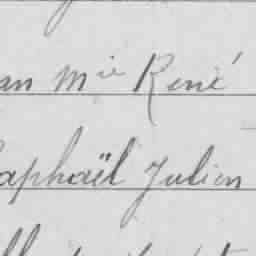 an Mie René
Raphaël Julien